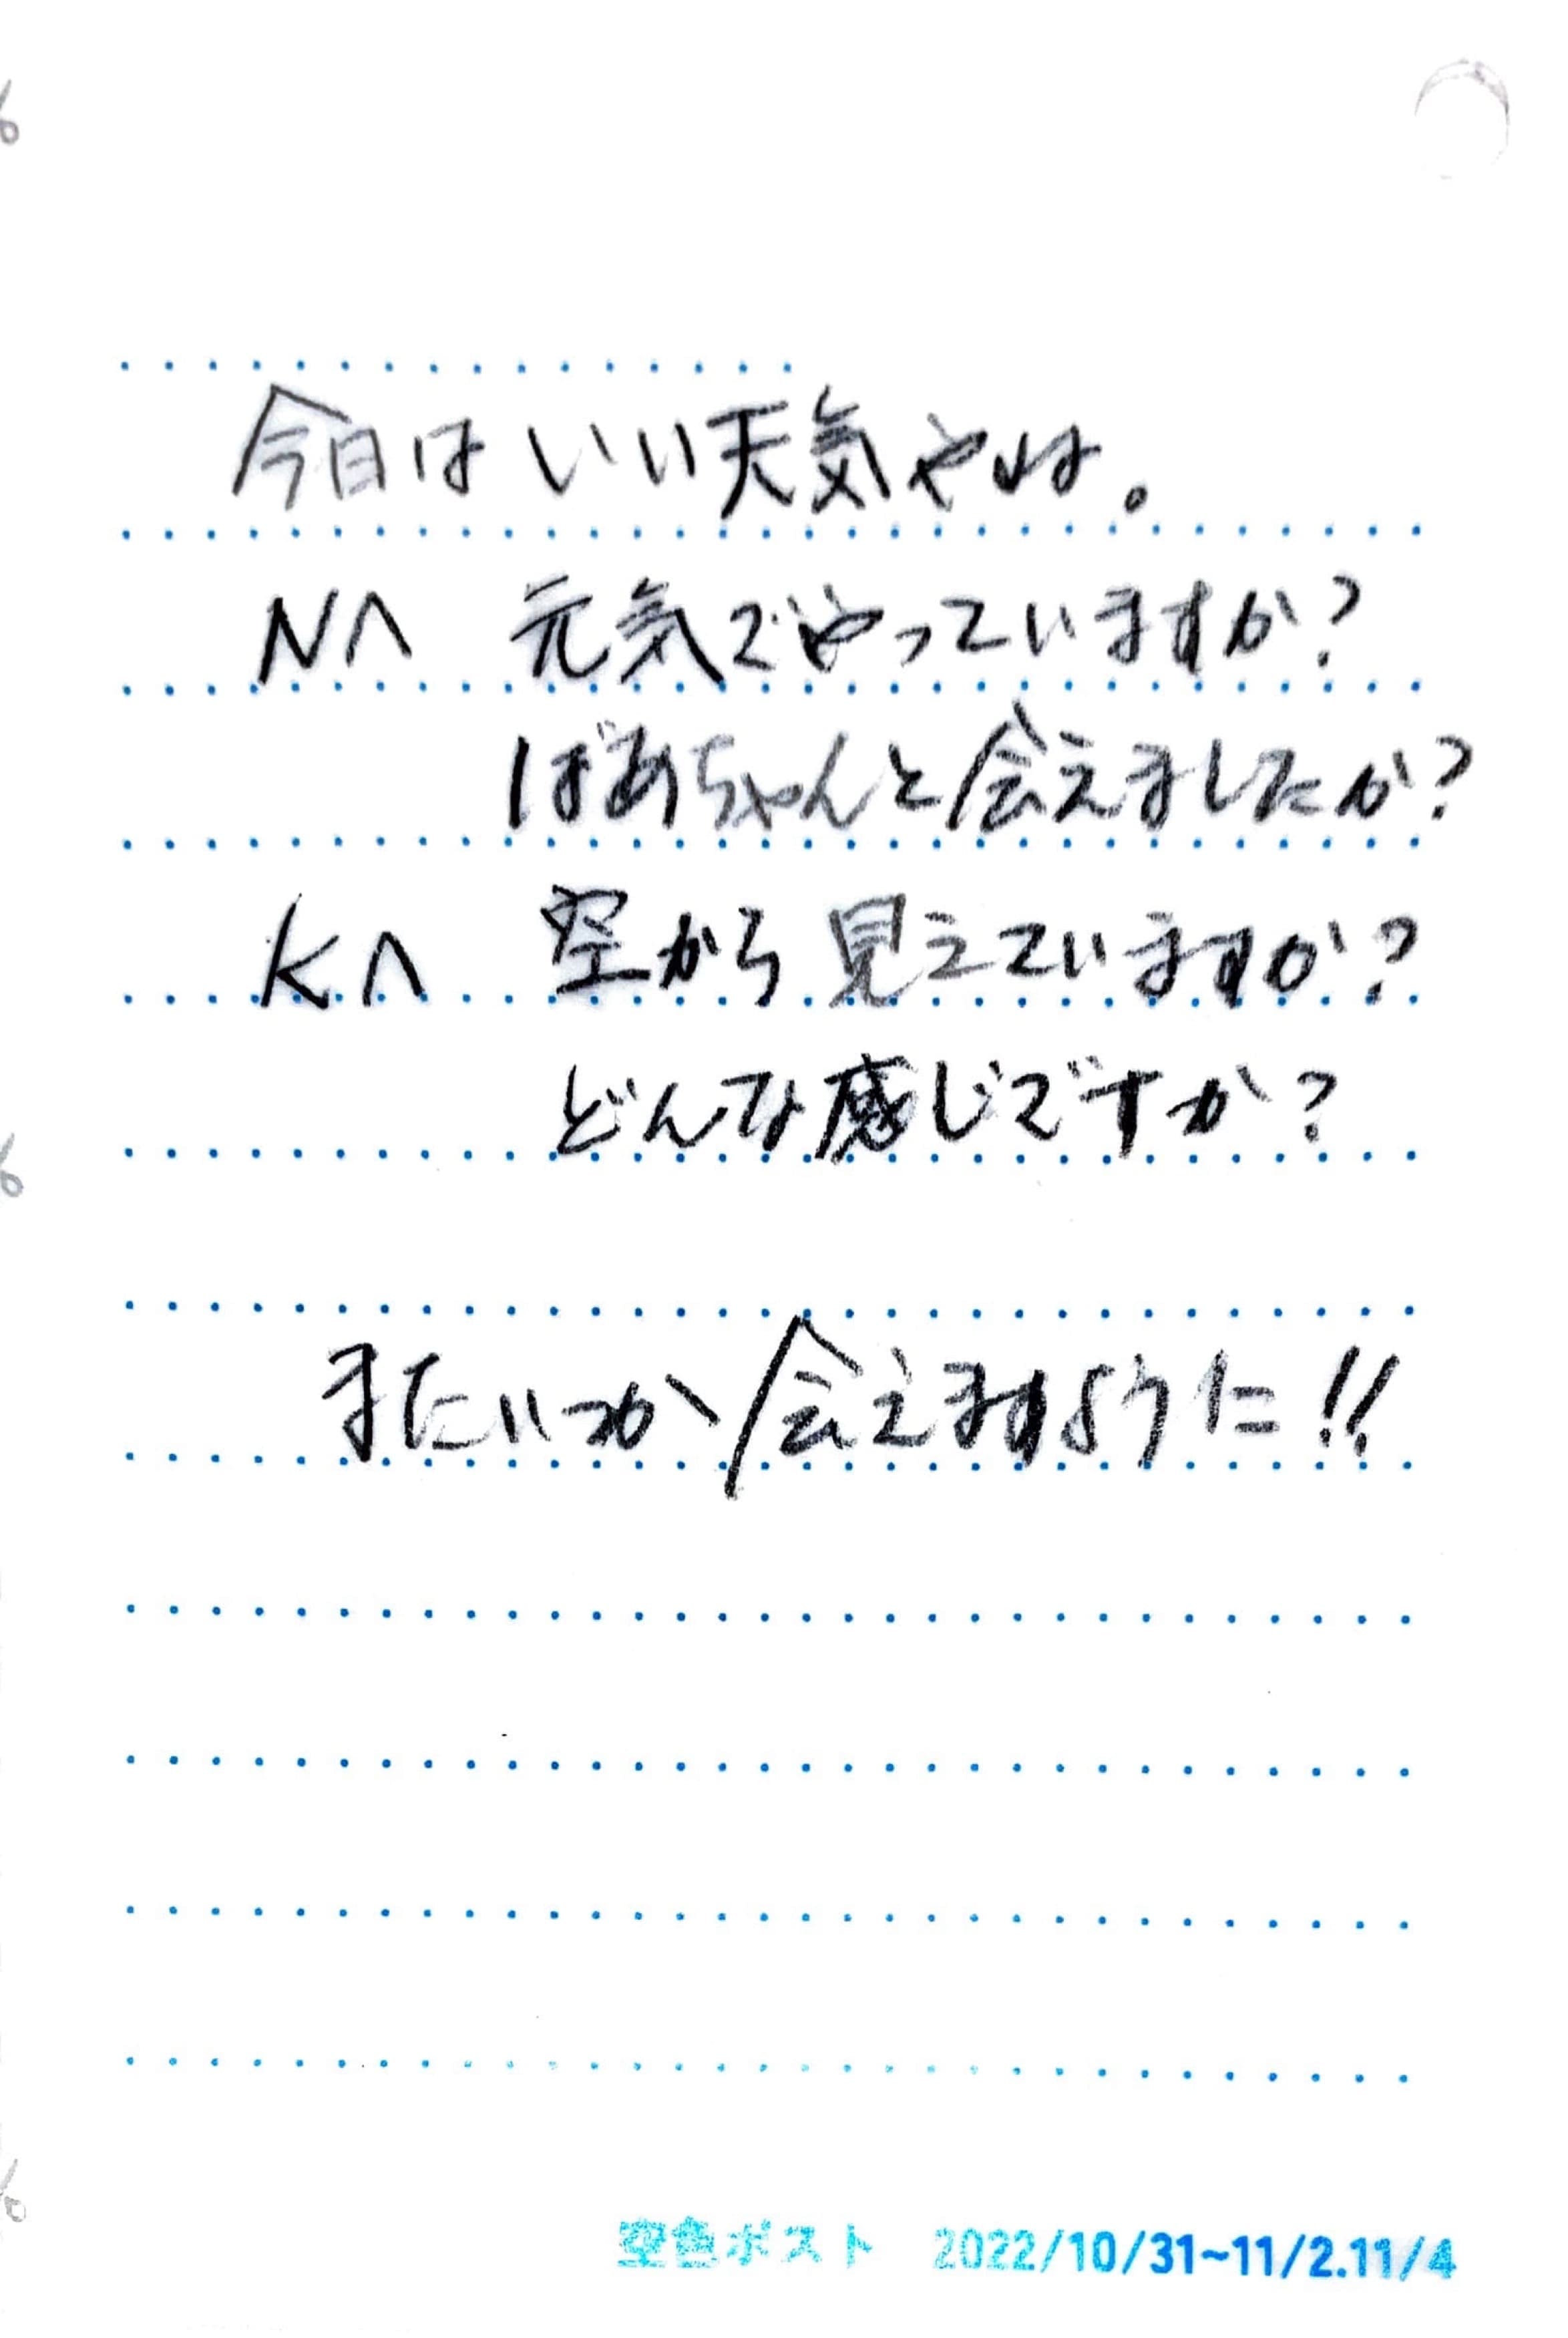 今日はいい天気やね。
Nへ 元気でやっていますか?
ばあちゃんと会えましたか?
Kへ 空から見えていますか?
どんな感じですか?
またいつか会えますように!!
空色ポスト 2022/10/31~11/2.11/4